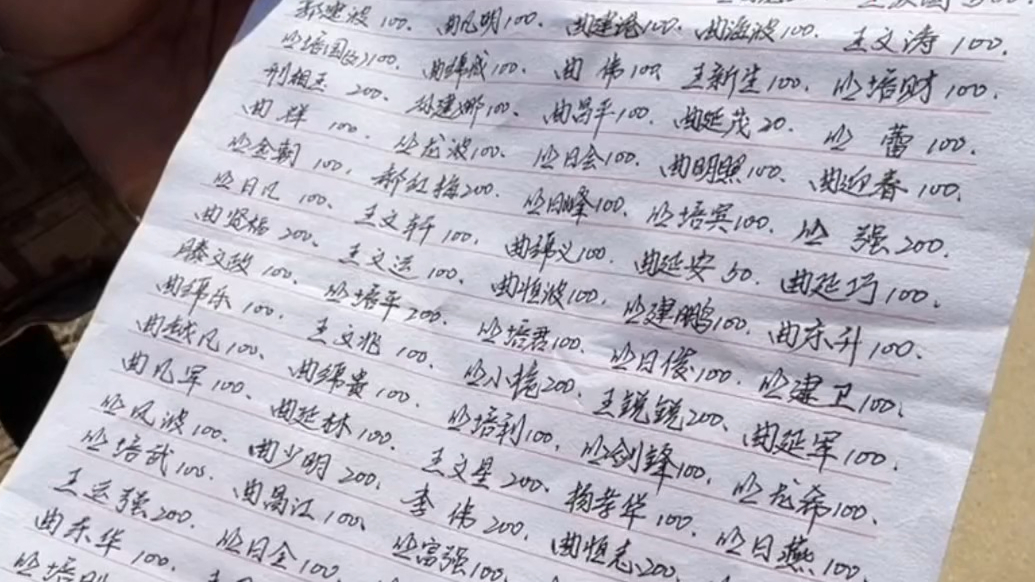 郝建波100. 曲凡明100. 曲建港100. 曲海波100. 王文涛100.
丛培国(西)100. 曲绵成100. 曲伟100 王新生100. 丛培财100.
刑相玉200. 孙建娜100. 曲昌平100. 曲延茂20. 丛蕾100.
曲祥100. 丛龙波100. 丛日会100. 曲明照100. 曲迎春100.
丛金朝100. 郝红梅200. 丛日峰100. 丛培宾100. 丛强200.
丛日凡100. 王文轩100. 曲绵义100. 曲延安50. 曲延巧100.
曲贤福200. 王文运100. 曲恒波100. 丛建鹏100. 曲东升100.
滕文政100. 丛培平200. 丛培君100. 丛日俊100. 丛建卫100.
曲绵乐100. 王文兆100. 丛小桅200. 王锐锐200. 曲延军100.
曲越凡100. 曲绵贵100. 丛培利100. 丛剑锋100. 丛龙希100.
曲凡军100. 曲延林100. 王文星200. 杨孝华100. 丛日燕100.
丛风波100. 曲少明200. 李伟200. 曲恒志200.
丛培武100. 曲昌江100. 丛富强100.
王运强200. 丛日全100.
曲东华100.
丛培